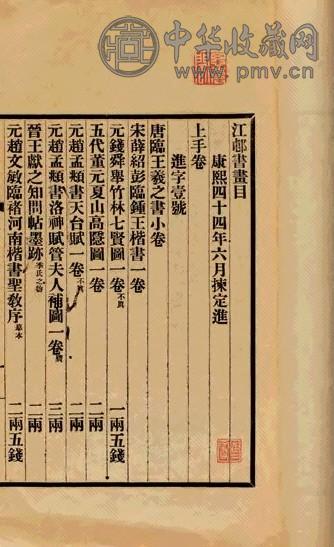 中华收藏网
www.pmv.cn
江邨書畫目
康熙四十四年六月揀定進
上手卷
進字壹號
唐臨王羲之書小卷
宋薛紹彭臨鍾王楷書一卷
元錢舜舉竹林七賢圖一卷 不真 一兩五錢
五代董元夏山高隱圖一卷 二兩
元趙孟頫書天台賦一卷 不真 二兩
元趙孟頫書洛神賦管夫人補圖一卷 三兩
晉王獻之知問帖墨跡 二兩
元趙文敏臨褚河南楷書聖教序 摹本 二兩五錢